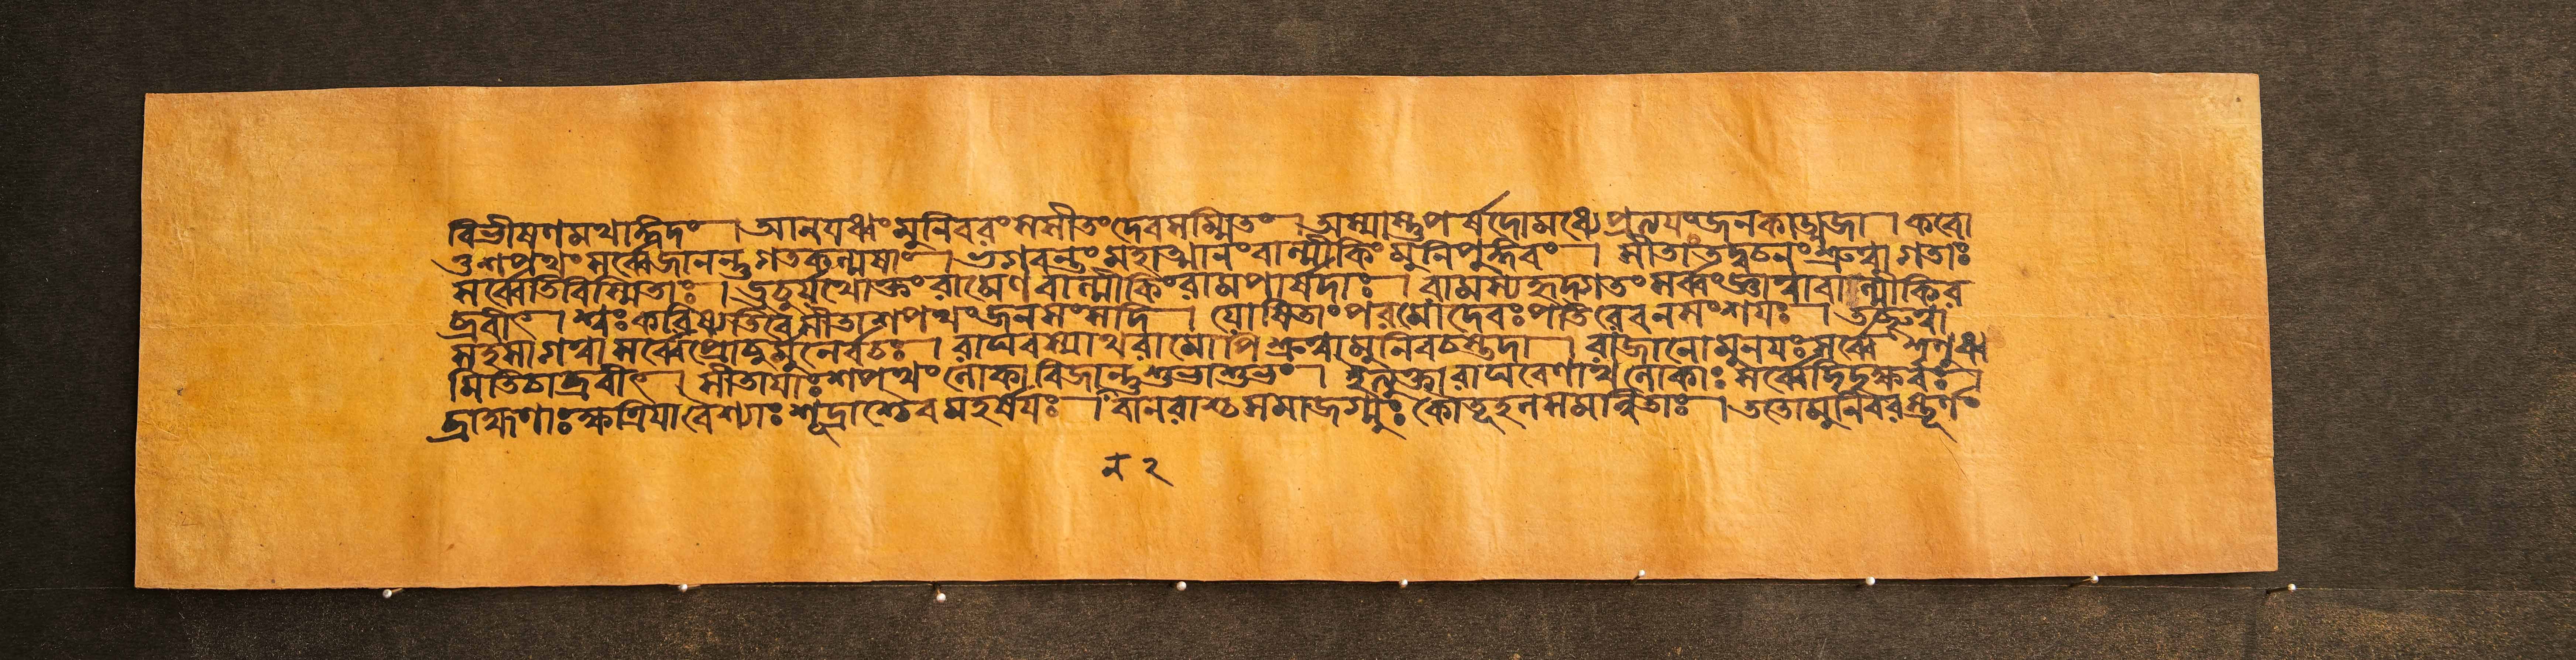 বিভীষণমথাঙ্গদং । আনযধ্বংমুনিবরংসসীতংদেবসম্মিতং । অস্যাস্তুপর্ষদোমধ্যেপ্রত্যযংজনকাত্মজা । করো
তুশপথংসর্ব্বেজানন্তুগতকল্মষাং । ভগবন্তংমহাত্মানংবাল্মীকিংমুনিপুঙ্গবং । সীতাংতদ্বচনংশ্রুত্বাগতাঃ
সর্ব্বেতিবিস্মিতাঃ । ঊচুর্যথোক্তংরামেণবাল্মীকিংরামপার্ষদাঃ । রামস্যহৃদ্গতংসর্ব্বংজ্ঞাত্বাবাল্মীকির
ব্রবীৎ । শ্বঃকরিষ্যতিবৈসীতাশপথংজনসংসদি । যোষিতাংপরমোদেবঃপতিরেবনসংশযঃ । তচ্ছ্রুত্বা
সহসাগত্বাসর্ব্বেপ্রোচুর্মুনের্বচঃ । রাঘবস্যাথরামোপিশ্রুত্বামুনিবচস্তদা । রাজানোমুনযঃসর্ব্বেশৃণুধ্ব
মিতিচাব্রবীৎ । সীতাযাঃশপথংলোকাবিজানন্তুশুভাশুভং । ইত্যুক্তারাঘবেণাথলোকাঃসর্ব্বেদিদৃক্ষবঃ ।
ব্রাহ্মণাঃক্ষত্রিযাবৈশ্যাঃশূদ্রাশ্চৈবমহর্ষযঃ । বানরাশ্চসমাজগ্মুঃকৌতূহলসমন্বিতাঃ । ততোমুনিবরস্তূর্ণং